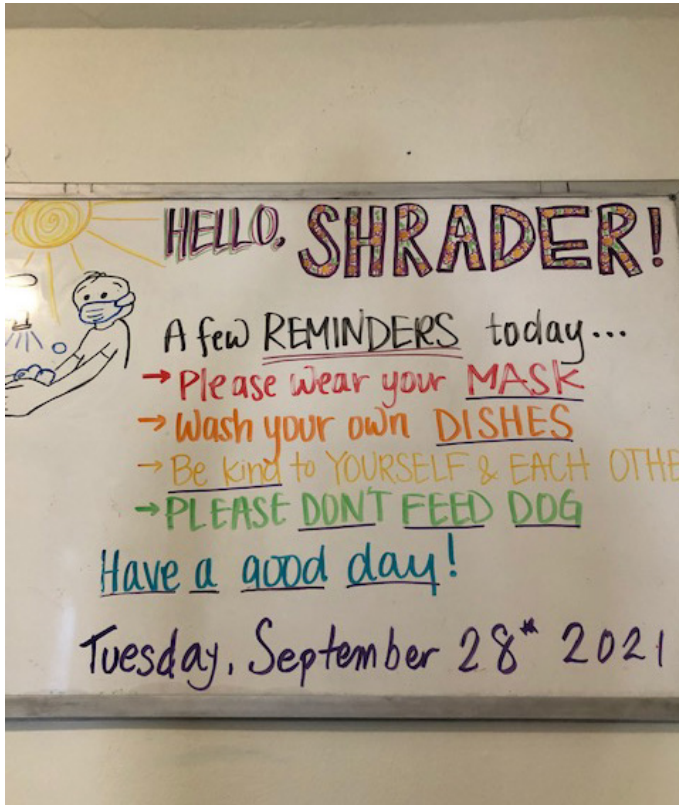 HELLO, SHRADER!
A few REMINDERS today...
→ Please wear your MASK
→ Wash your own DISHES
→ Be kind to YOURSELF & EACH OTHE
→ PLEASE DON'T FEED DOG
Have a good day!
Tuesday, September 28th 2021